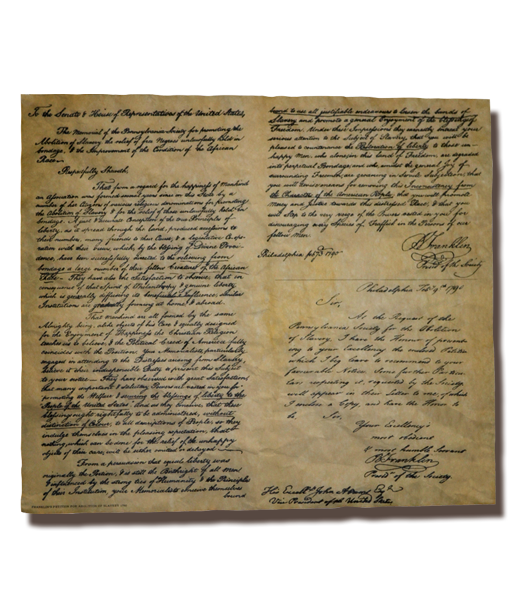 To the Senate & House of Representatives of the United States,
The Memorial of the Pennsylvania Society for promoting the
Abolition of Slavery, the relief of free Negroes unlawfully held in
bondage, & the Improvement of the Condition of the African
Races.
Respectfully Sheweth,
That from a regard for the happiness of Mankind
an Association was formed several years since in this State by a
number of her Citizens of various religious denominations for promoting
the Abolition of Slavery & for the relief of those unlawfully held in
bondage. A just & accurate Conception of the true Principles of
liberty, as it spread through the land, produced accessions to
their numbers, many friends to their Cause, & a legislative Co-operation
with their views, which, by the blessing of Divine Providence,
have been successfully directed to the relieving from
bondage a large number of their fellow Creatures of the African
Race. They have also the Satisfaction to observe, that in
consequence of that Spirit of Philanthropy & genuine liberty
which is generally diffusing its beneficial Influence, similar
Institutions are gradually forming at home & abroad.
That mankind are all formed by the same
Almighty being, alike objects of his Care & equally designed
for the Enjoyment of Happiness the Christian Religion
teaches us to believe & the Political Creed of America fully
coincides with the Position. Your Memorialists, particularly
engaged in attending to the Distresses arising from Slavery,
believe it their indispensable Duty to present this Subject
to your notice. They have observed with great Satisfaction
that many important & salutary Powers are vested in you for
promoting the Welfare & securing the blessings of liberty to the
People of the United States. And as they conceive, that these
blessings ought rightfully to be administered, without
distinction of Colour, to all descriptions of People, so they
indulge themselves in the pleasing expectation, that
nothing, which can be done for the relief of the unhappy
objects of their care, will be either omitted or delayed
From a persuasion that equal liberty was
originally the Portion, & is still the Birthright of all men
& influenced by the strong ties of Humanity & the Principles
of their Institution, your Memorialists conceive themselves
bound
bound to use all justifiable endeavours to loosen the bands of
Slavery and promote a general Enjoyment of the blessings of
Freedom. Under these Impressions they earnestly intreat your
serious attention to the Subject of Slavery, that you will be
pleased to countenance the Restoration of liberty to those unhappy
Men, who alone, in this land of Freedom, are degraded
into perpetual Bondage, and who amidst the general Joy of
surrounding Freemen, are groaning in Servile Subjection, that
you will devise means for removing this Inconsistency from
the Character of the American People, that you will promote
Mercy and Justice towards this distressed Race, & that you
will Step to the very verge of the Powers vested in you for
discouraging every Species of Traffick in the Persons of our
fellow Men.
B Franklin
Philadelphia Feby 3d 1790
Presidt. of the Society
Philadelphia Feby 9th 1790
Sir,
At the Request of the
Pennsylvania Society for the Abolition
of Slavery, I have the Honour of presenting
to your Excellency the enclosed Petition
which I beg leave to recommend to your
favourable Notice. Some further Particulars
respecting it, requested by the Society
will appear in their Letter to me, of which
I enclose a Copy, and have the Honour to
be Sir,
Your Excellency's
most obedient
& most humble Servant
B Franklin
Presidt. of the Society
His Excelly John Adams Esqr.
Vice President of the United States